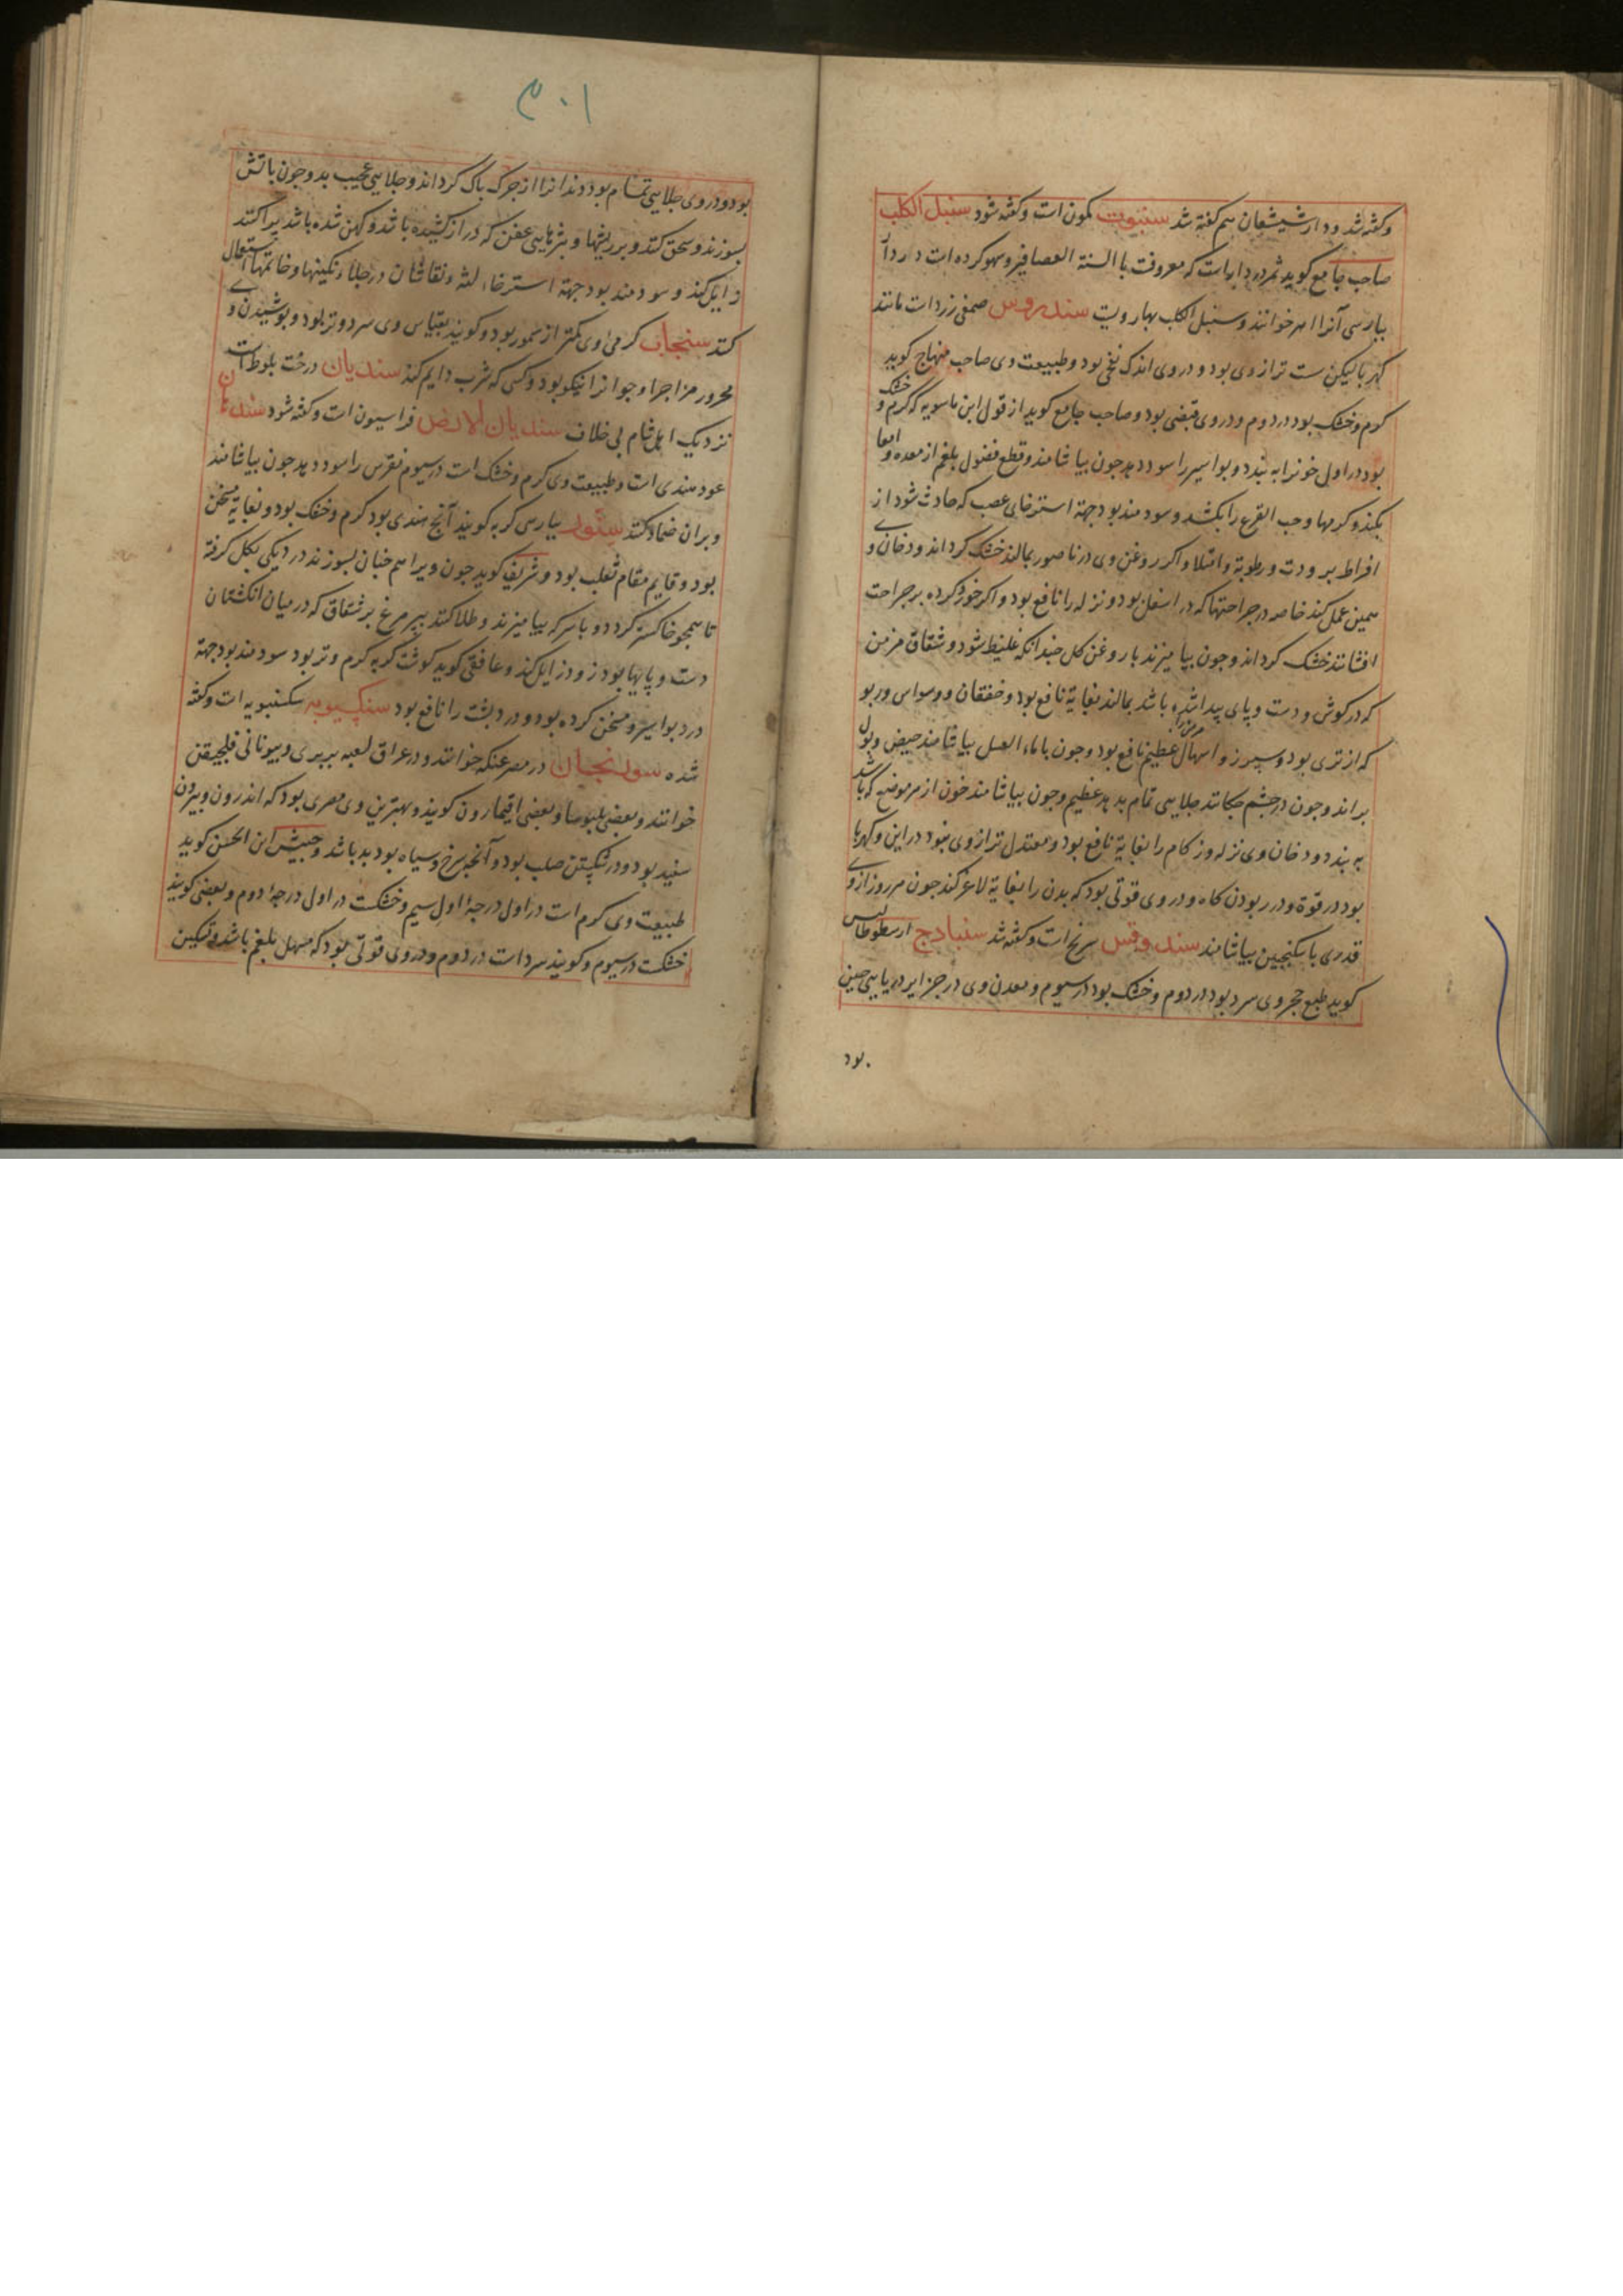 وکفته شد و دارشیشعان هم کفته شد سنبوت کمون است وکفته شود سنبل الکلب
صاحب جامع کوید ثمر دردار است که معروفست بالسنة العصافیر و سهو کرده است دردار
بپارسی آنرا خوانند وسنبل الکلب بهار ویست سندروس صمغی زرد است مانند
کهربا لیکن سست تر از وی بود و در وی اندک تلخی بود وطبیعت وی صاحب منهاج کوید
کرم وخشک بود در دوم ودر وی قبضی بود وصاحب جامع کوید از قول ابن ماسویه که کرم و خشک
بود در اول خونرا به بندد وبواسیر را سود دهد چون بیاشامند وقطع فضول بلغم از معده وامعا
بکند وکرمها وحب القرع را بکشد وسودمند بود جهة استرخای عصب که حادث شود از
افراط برودت ورطوبة وامتلا واکر روغن وی در ناصور بمالند خشک کرداند ودخان وی
همین عمل کند خاصه در جراحتها که در اسفل بود ونزله را نافع بود واکر خورد کرده بر جراحت
افشانند خشک کرداند وچون بیامیزند با روغن کل چندانکه غلیظ شود و شقاق مزمن
که در کوش ودست وپای پیدا شده باشد بمالند بغایة نافع بود وخفقان ووسواس وربو
که از تری بود وسپرز واسهال مزمنرا عظیم نافع بود وچون با ماء العسل بیاشامند حیض وبول
براند وچون در چشم چکانند جلایی تمام بدهد عظیم وچون بیاشامند خون از هر موضع که باشد
به بندد ودخان وی نزله وزکام را بغایة نافع بود ومعتدل تر از وی نبود در این وکهربا
بود در قوة ودر ربودن کاه ودر وی قوتی بود که بدن را بغایة لاغر کند چون هر روز از وی
قدری با سکنجبین بیاشامند سندوقس سرنج است وکفته شد سنبادج ارسطوطالیس
کوید طبع حجر وی سرد بود در دوم وخشک بود در سیوم ومعدن وی در جزایر دریایی چین
بود
۳۰۱
بود ودر وی جلایی تمام بود دندانرا از چرک پاک کرداند وجلایی عجیب بدهد وچون باتش
بسوزند وسحق کنند وبر ریشها وبثرهایی عفن که دراز کشیده باشد وکهن شده باشد پراکنند
زایل کند وسودمند بود جهة استرخاء لثه ونقاشان در جلاء نکینها وخاتمها استعمال
کنند سنجاب کرمی وی کمتر از سمور بود وکویند بقیاس وی سرد وتر بود وپوشیدن وی
محرور مزاجرا وجوانرا نیکو بود وکسی که شرب دایم کند سندیان درخت بلوط است
نزدیک اهل شام بی خلاف سندیان الارض فراسیون است وکفته شود سندهان
عود هندی است وطبیعت وی کرم وخشک است در سیوم نقرس را سود دهد چون بیاشامند
وبران ضماد کنند سنور بپارسی کربه کویند آنچ هندی بود کرم وخشک بود وبغایة مسخن
بود وقایم مقام ثعلب بود وشریف کوید چون ویرا هم چنان بسوزند در دیکی بکل کرفته
تا همچو خاکستر کردد و با سرکه بیامیزند وطلا کنند بپر مرغ بر شقاق که در میان انکشتان
دست وپایها بود زود زایل کند وغافقی کوید کوشت کربه کرم وتر بود سودمند بود جهة
درد بواسیر ومسخن کرده بود ودرد پشت را نافع بود سنکسبویه سکسنبویه است وکفته
شده سورنجان در مصر عنکه خوانند ودر عراق لعبه بربری وبیونانی قلجیقن
خوانند وبعضی بلبوسا وبعضی اقیمارون کویند وبهترین وی مصری بود که اندرون وبیرون
سفید بود ودر شکستن صلب بود وآنچه سرخ وسیاه بود بد باشد وحبیش ابن الحسن کوید
طبیعت وی کرم است در اول درجهٔ اول سیم وخشکست در اول درجهٔ دوم وبعضی کویند
خشکست در سیوم وکویند سرد است در دوم ودر وی قوتی بود که مسهل بلغم باشد وتسکین